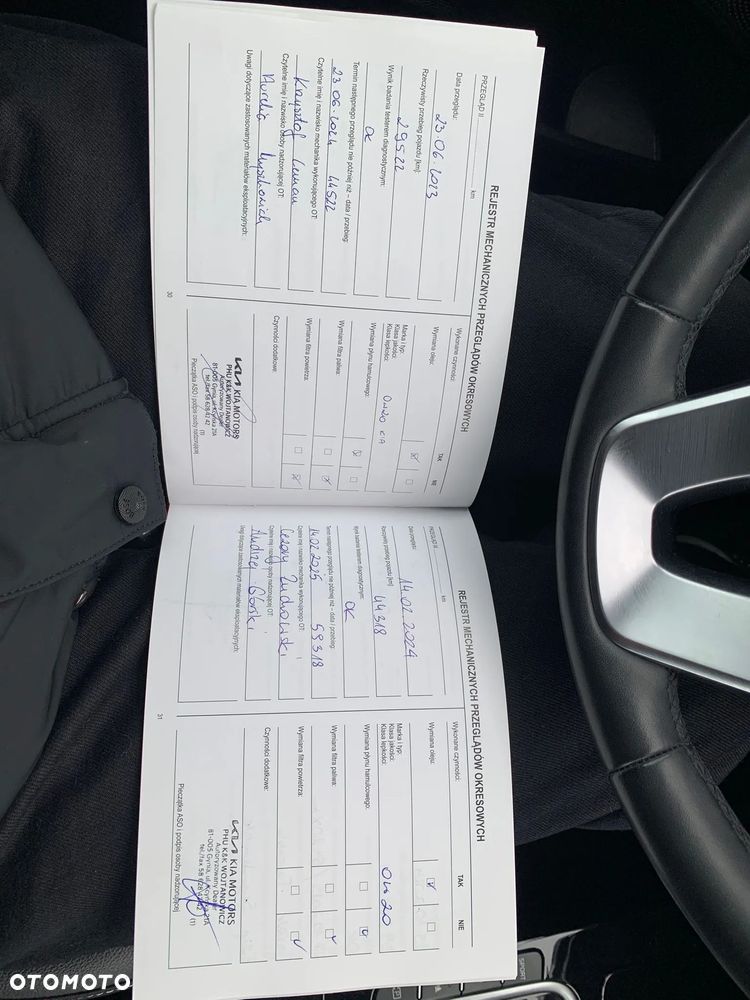 REJESTR MECHANICZNYCH PRZEGLĄDÓW OKRESOWYCH
PRZEGLĄD II
km
Data przeglądu:
23.06.2023
Rzeczywisty przebieg pojazdu [km]:
29522
Wynik badania testerem diagnostycznym:
OK
Termin następnego przeglądu nie później niż – data / przebieg:
23.06.2024 44522
Czytelne imię i nazwisko mechanika wykonującego OT:
Krzysztof Leman
Czytelne imię i nazwisko osoby nadzorującej OT:
Aurelia
Uwagi dotyczące zastosowanych materiałów eksploatacyjnych:
30
Wykonane czynności:
TAK
NIE
Wymiana oleju:
Marka i typ:
Klasa jakości:
Klasa lepkości:
0W20
Wymiana płynu hamulcowego:
Wymiana filtra paliwa:
Wymiana filtra powietrza:
Czynności dodatkowe:
KIA MOTORS
PHU K&K WOJTANOWICZ
Autoryzowany Dealer
81-005 Gynia, ul.
tel./fax 58 628 41 42
(1)
Pieczątka ASO i podpis osoby nadzorującej
REJESTR MECHANICZNYCH PRZEGLĄDÓW OKRESOWYCH
km
Data przeglądu:
14.02.2024
Rzeczywisty przebieg pojazdu [km]:
44318
Wynik badania testerem diagnostycznym:
OK
Termin następnego przeglądu nie później niż – data / przebieg:
14.02.2025 59318
Czytelne imię i nazwisko mechanika wykonującego OT:
Cezary
Czytelne imię i nazwisko osoby nadzorującej OT:
Andrzej Górski
Uwagi dotyczące zastosowanych materiałów eksploatacyjnych:
31
Wykonane czynności:
TAK
NIE
Wymiana oleju:
Marka i typ:
Klasa jakości:
Klasa lepkości:
0W20
Wymiana płynu hamulcowego:
Wymiana filtra paliwa:
Wymiana filtra powietrza:
Czynności dodatkowe:
KIA MOTORS
PHU K&K WOJTANOWICZ
Autoryzowany Dealer
81-005 Gynia, ul.
tel./fax 58 628 41 42
(1)
Pieczątka ASO i podpis osoby nadzorującej
SPORT
OTOMOTO